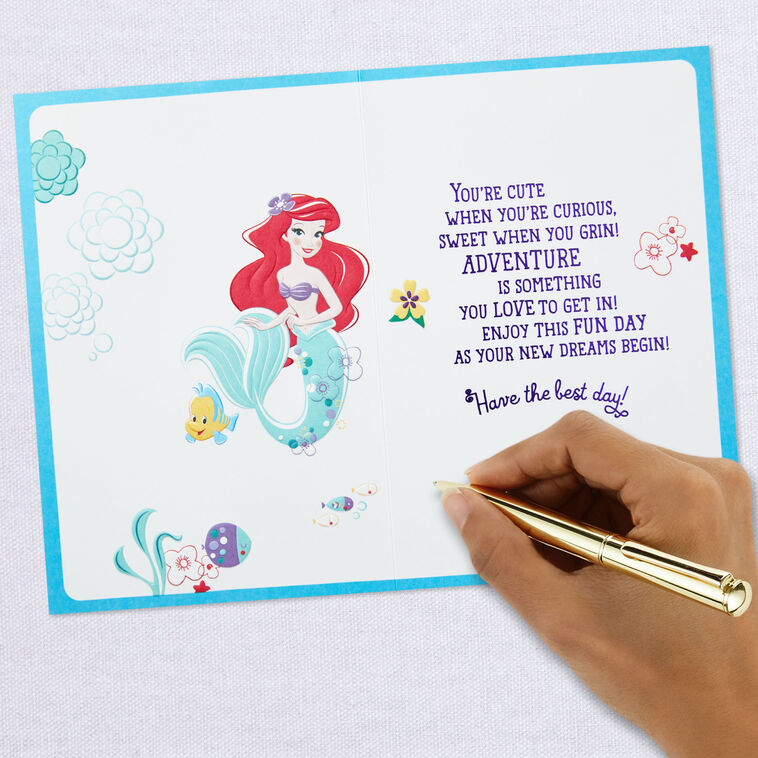 You're cute
when you're curious,
sweet when you grin!
ADVENTURE
is something
you LOVE to get in!
Enjoy this FUN DAY
as your new dreams begin!
Have the best day!